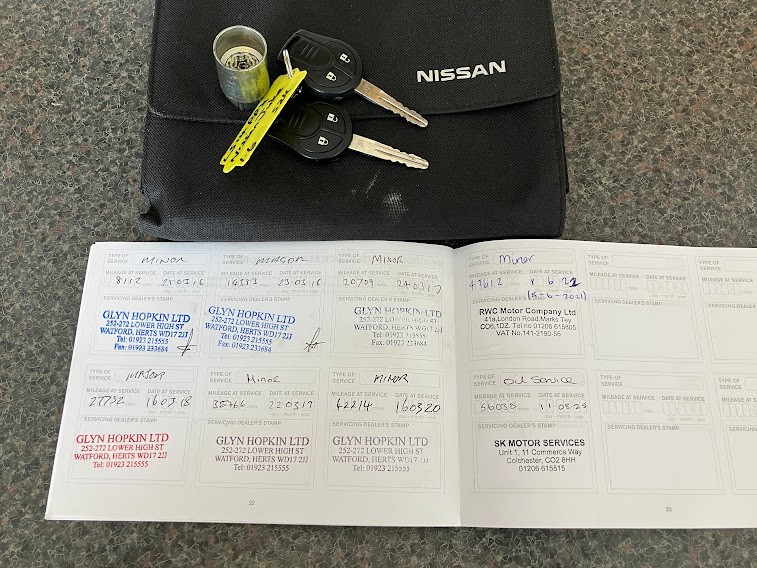 NISSAN
TYPE OF SERVICE Minor
MILEAGE AT SERVICE DATE AT SERVICE
8112 miles
day month year
SERVICING DEALER'S STAMP
GLYN HOPKIN LTD
252-272 LOWER HIGH ST
WATFORD, HERTS WD17 2JJ
Tel: 01923 215555
Fax: 01923 233684
TYPE OF SERVICE
MILEAGE AT SERVICE DATE AT SERVICE
23 03 16
day month year
SERVICING DEALER'S STAMP
GLYN HOPKIN LTD
252-272 LOWER HIGH ST
WATFORD, HERTS WD17 2JJ
Tel: 01923 215555
Fax: 01923 233684
TYPE OF SERVICE Minor
MILEAGE AT SERVICE DATE AT SERVICE
20709 miles 240317
day month year
SERVICING DEALER'S STAMP
GLYN HOPKIN LTD
252-272 LOWER HIGH ST
WATFORD, HERTS WD17 2JJ
Tel: 01923 215555
Fax: 01923 233684
TYPE OF SERVICE
MILEAGE AT SERVICE DATE AT SERVICE
27752 miles 160318
day month year
SERVICING DEALER'S STAMP
GLYN HOPKIN LTD
252-272 LOWER HIGH ST
WATFORD, HERTS WD17 2JJ
Tel: 01923 215555
TYPE OF SERVICE Minor
MILEAGE AT SERVICE DATE AT SERVICE
miles 220319
day month year
SERVICING DEALER'S STAMP
GLYN HOPKIN LTD
252-272 LOWER HIGH ST
WATFORD, HERTS WD17 2JJ
Tel: 01923 215555
TYPE OF SERVICE MINOR
MILEAGE AT SERVICE DATE AT SERVICE
42214 miles 160320
day month year
SERVICING DEALER'S STAMP
GLYN HOPKIN LTD
252-272 LOWER HIGH ST
WATFORD, HERTS WD17 2JJ
Tel: 01923 215555
22
TYPE OF SERVICE Minor
MILEAGE AT SERVICE DATE AT SERVICE
47612 miles 8 6 22
(8-6-2021)
SERVICING DEALER'S STAMP
RWC Motor Company Ltd
41a, London Road, Marks Tey
CO6,1DZ. Tel no 01206 615805
VAT No.141-2190-56
TYPE OF SERVICE
MILEAGE AT SERVICE DATE AT SERVICE
miles
day month year
SERVICING DEALER'S STAMP
TYPE OF SERVICE
MILEAGE
SERVICING
TYPE OF SERVICE Oil Service
MILEAGE AT SERVICE DATE AT SERVICE
miles
day month year
SERVICING DEALER'S STAMP
SK MOTOR SERVICES
Unit 1, 11 Commerce Way
Colchester, CO2 8HH
01206 615515
TYPE OF SERVICE
MILEAGE AT SERVICE DATE AT SERVICE
miles
day month year
SERVICING DEALER'S STAMP
TYPE OF SERVICE
MILEAGE
SERVICING
23